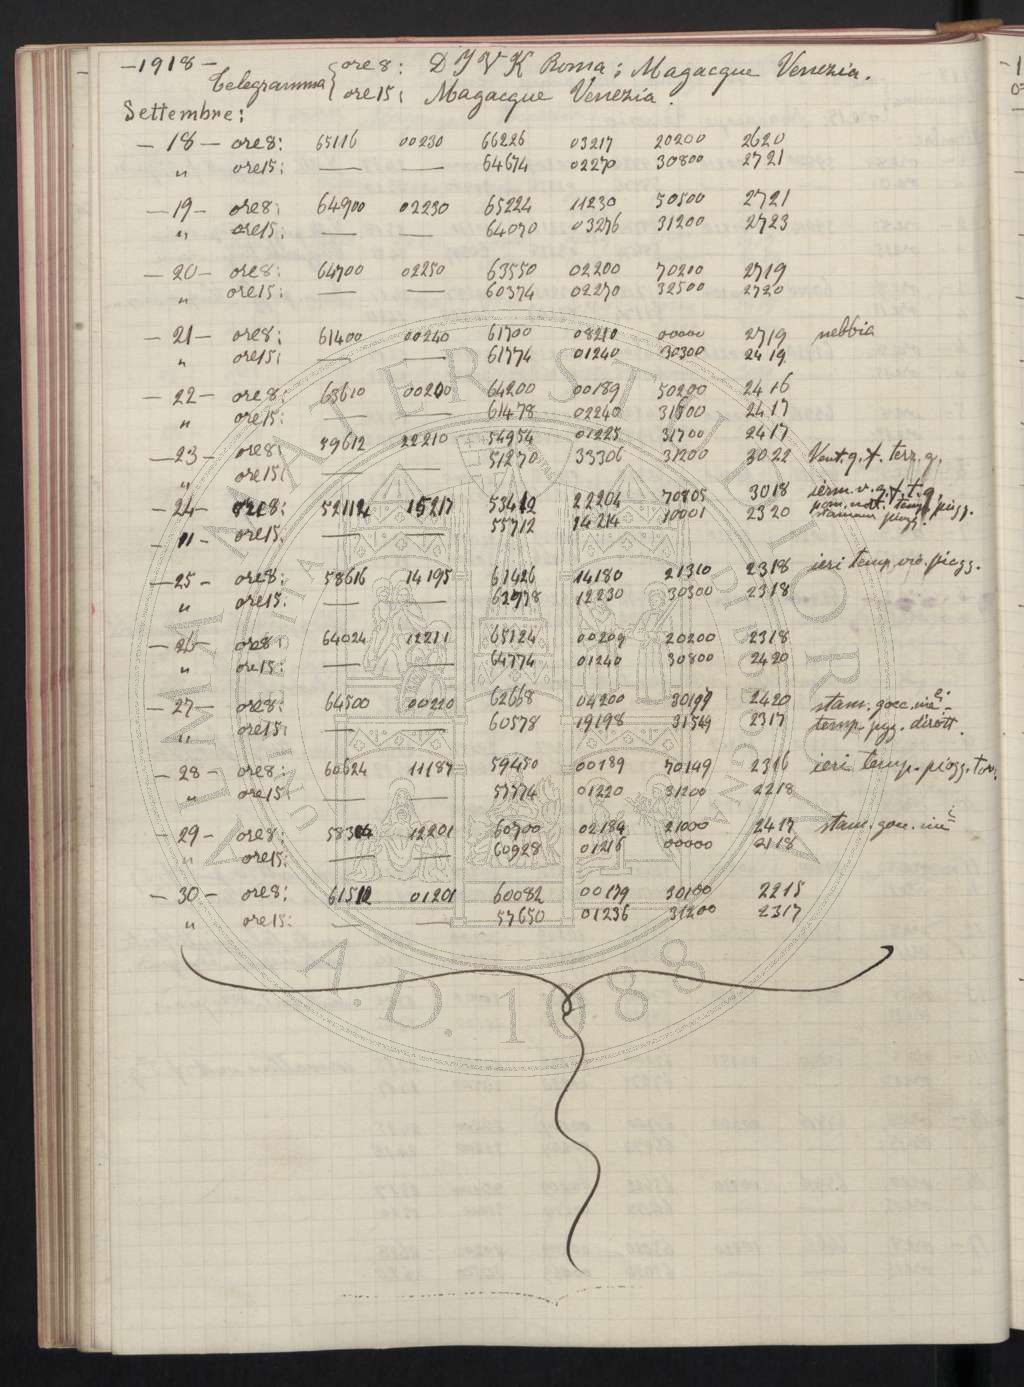 -1918-
Telegramma { ore 8: D I V K Roma; Magacque Venezia.
ore 15: Magacque Venezia.
Settembre:
- 18 - ore 8: 65116 00230 66226 03217 20200 2620
" ore 15: — — 64674 02270 30800 2721
- 19 - ore 8: 64900 02230 65224 11230 50500 2721
" ore 15: — — 64070 03276 31200 2723
- 20 - ore 8: 64700 02250 63550 02200 70200 2719
" ore 15: — — 60374 02270 32500 2720
- 21 - ore 8: 61400 00240 61700 08210 00000 2719 nebbia
" ore 15: — — 61774 01240 30300 2419
- 22 - ore 8: 63610 00200 64200 00189 50200 2416
" ore 15: — — 61478 02240 31800 2417
- 23 - ore 8: 59612 22210 54954 01225 31700 2417
" ore 15: — — 51270 33306 31200 3022 Vent. g. f. terz. g.
- 24 - ore 8: 52112 15217 53412 22204 70805 3018
- " - ore 15: — — 55712 14214 10001 2320
- 25 - ore 8: 58616 14195 61426 14180 21310 2318 ieri temp. piogg.
" ore 15: — — 62978 12230 30300 2318
- 26 - ore 8: 64024 12211 65124 00209 20200 2318
" ore 15: — — 64774 01240 30800 2420
- 27 - ore 8: 64500 00220 62668 04200 30199 2420 stam. gocc.
" ore 15: — — 60578 19198 31549 2317 temp. pgg. dirott.
- 28 - ore 8: 60624 11187 59450 00189 70149 2316 ieri temp. piogg. torr.
" ore 15: — — 57774 01220 31200 2218
- 29 - ore 8: 58314 12201 60700 02184 21000 2417 stam. gocc.
" ore 15: — — 60928 01216 00000 2118
- 30 - ore 8: 61512 01201 60082 00179 30100 2215
" ore 15: — — 57650 01236 31200 2317
ALMA MATER STUDIORUM
A.D. 1088